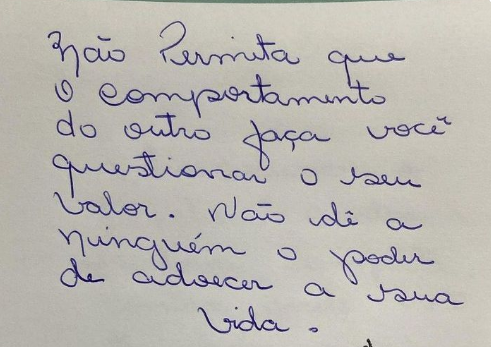 Não Permita que
o comportamento
do outro faça você
questionar o seu
valor. Não dê a
ninguém o poder
de adoecer a sua
vida.